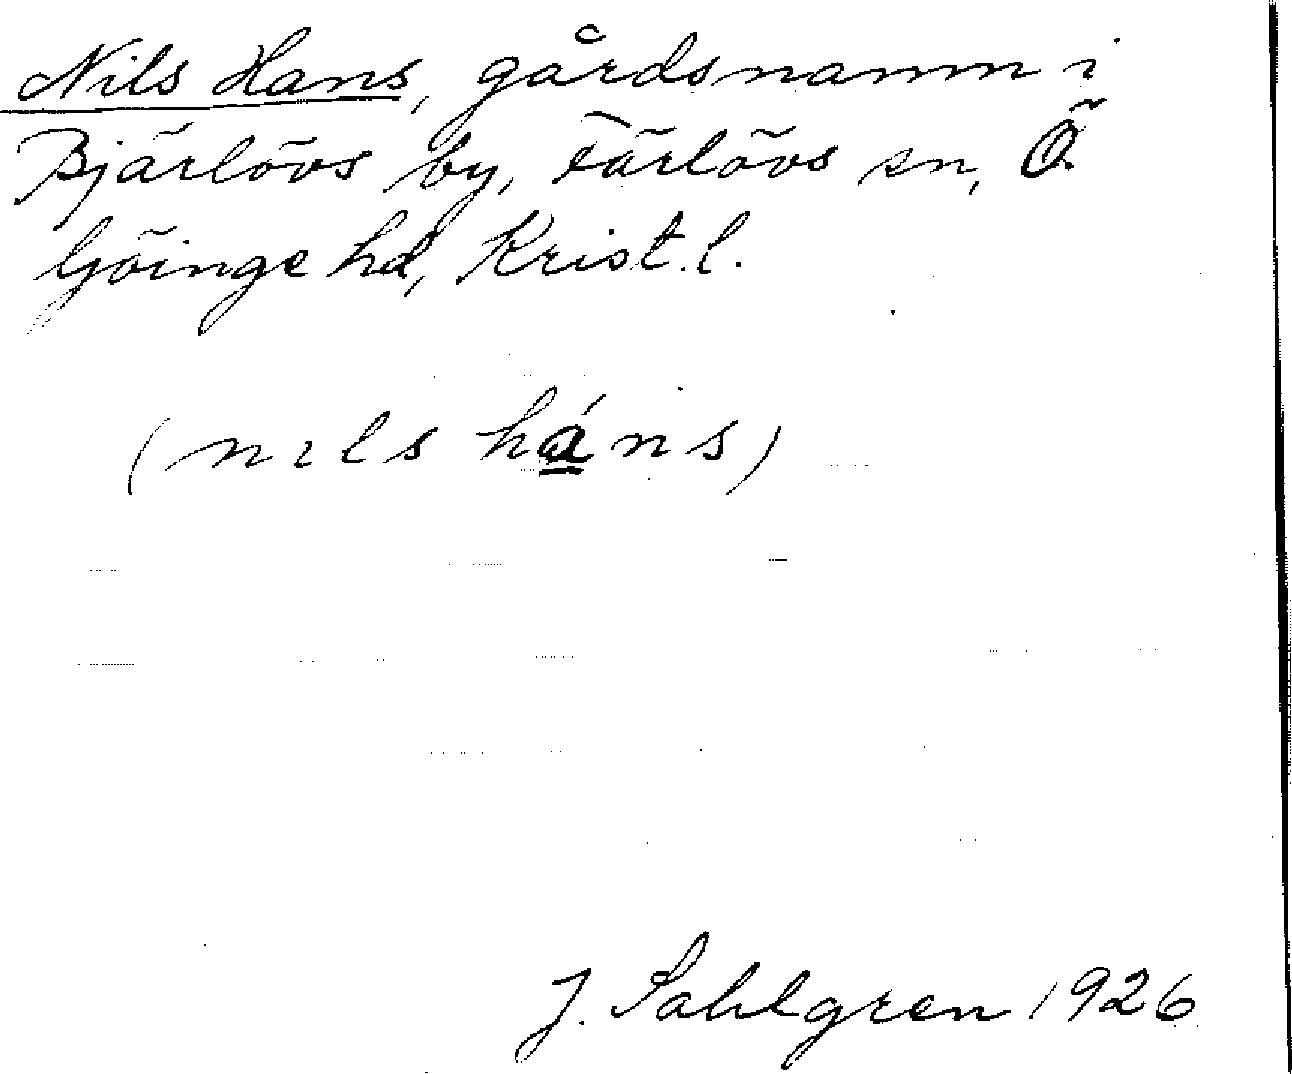 Nils Hans, gårdsnamn i
Bjärlövs by, Färlövs sn, Ö.
Göinge hd, Krist. l.
(nıls háns)
J. Sahlgren 1926